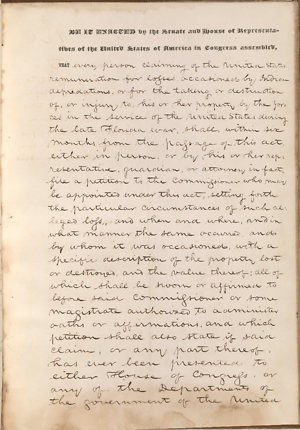 BE IT ENACTED by the Senate and House of Representa-
tives of the United States of America in Congress assembled,
THAT every person claiming of the United States
remuneration for losses occasioned by Indian
depredations, or for the taking or destruction
of, or injury to, his or her property by the for
ces in the service of the United States during
the late Florida war, shall, within six
months from the passage of this act
either in person, or by his or her rep
resentative, guardian, or attorney in fact,
file a petition to the Commissioner who may
be appointed under this act, setting forth
the particular circumstances of such al
leged loss, and when and where, and in
what manner the same occurred and
by whom it was occasioned, with a
specific description of the property lost
or destroyed, and the value thereof; all of
which shall be sworn or affirmed to
before said Commissioner or some
magistrate authorized to administer
oaths or affirmations, and which
petition shall also state if said
claim, or any part thereof,
has ever been presented to
either House of Congress, or
any of the Departments of
the government of the United